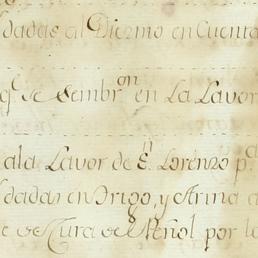 dadas al Diezmo en Cuenta
q.e se Sembr.on en La Lavor
ala Lavor de S.n Lorenzo p.a
dadas en Trigo, y Arina a
e se Cura del Peñol por lo